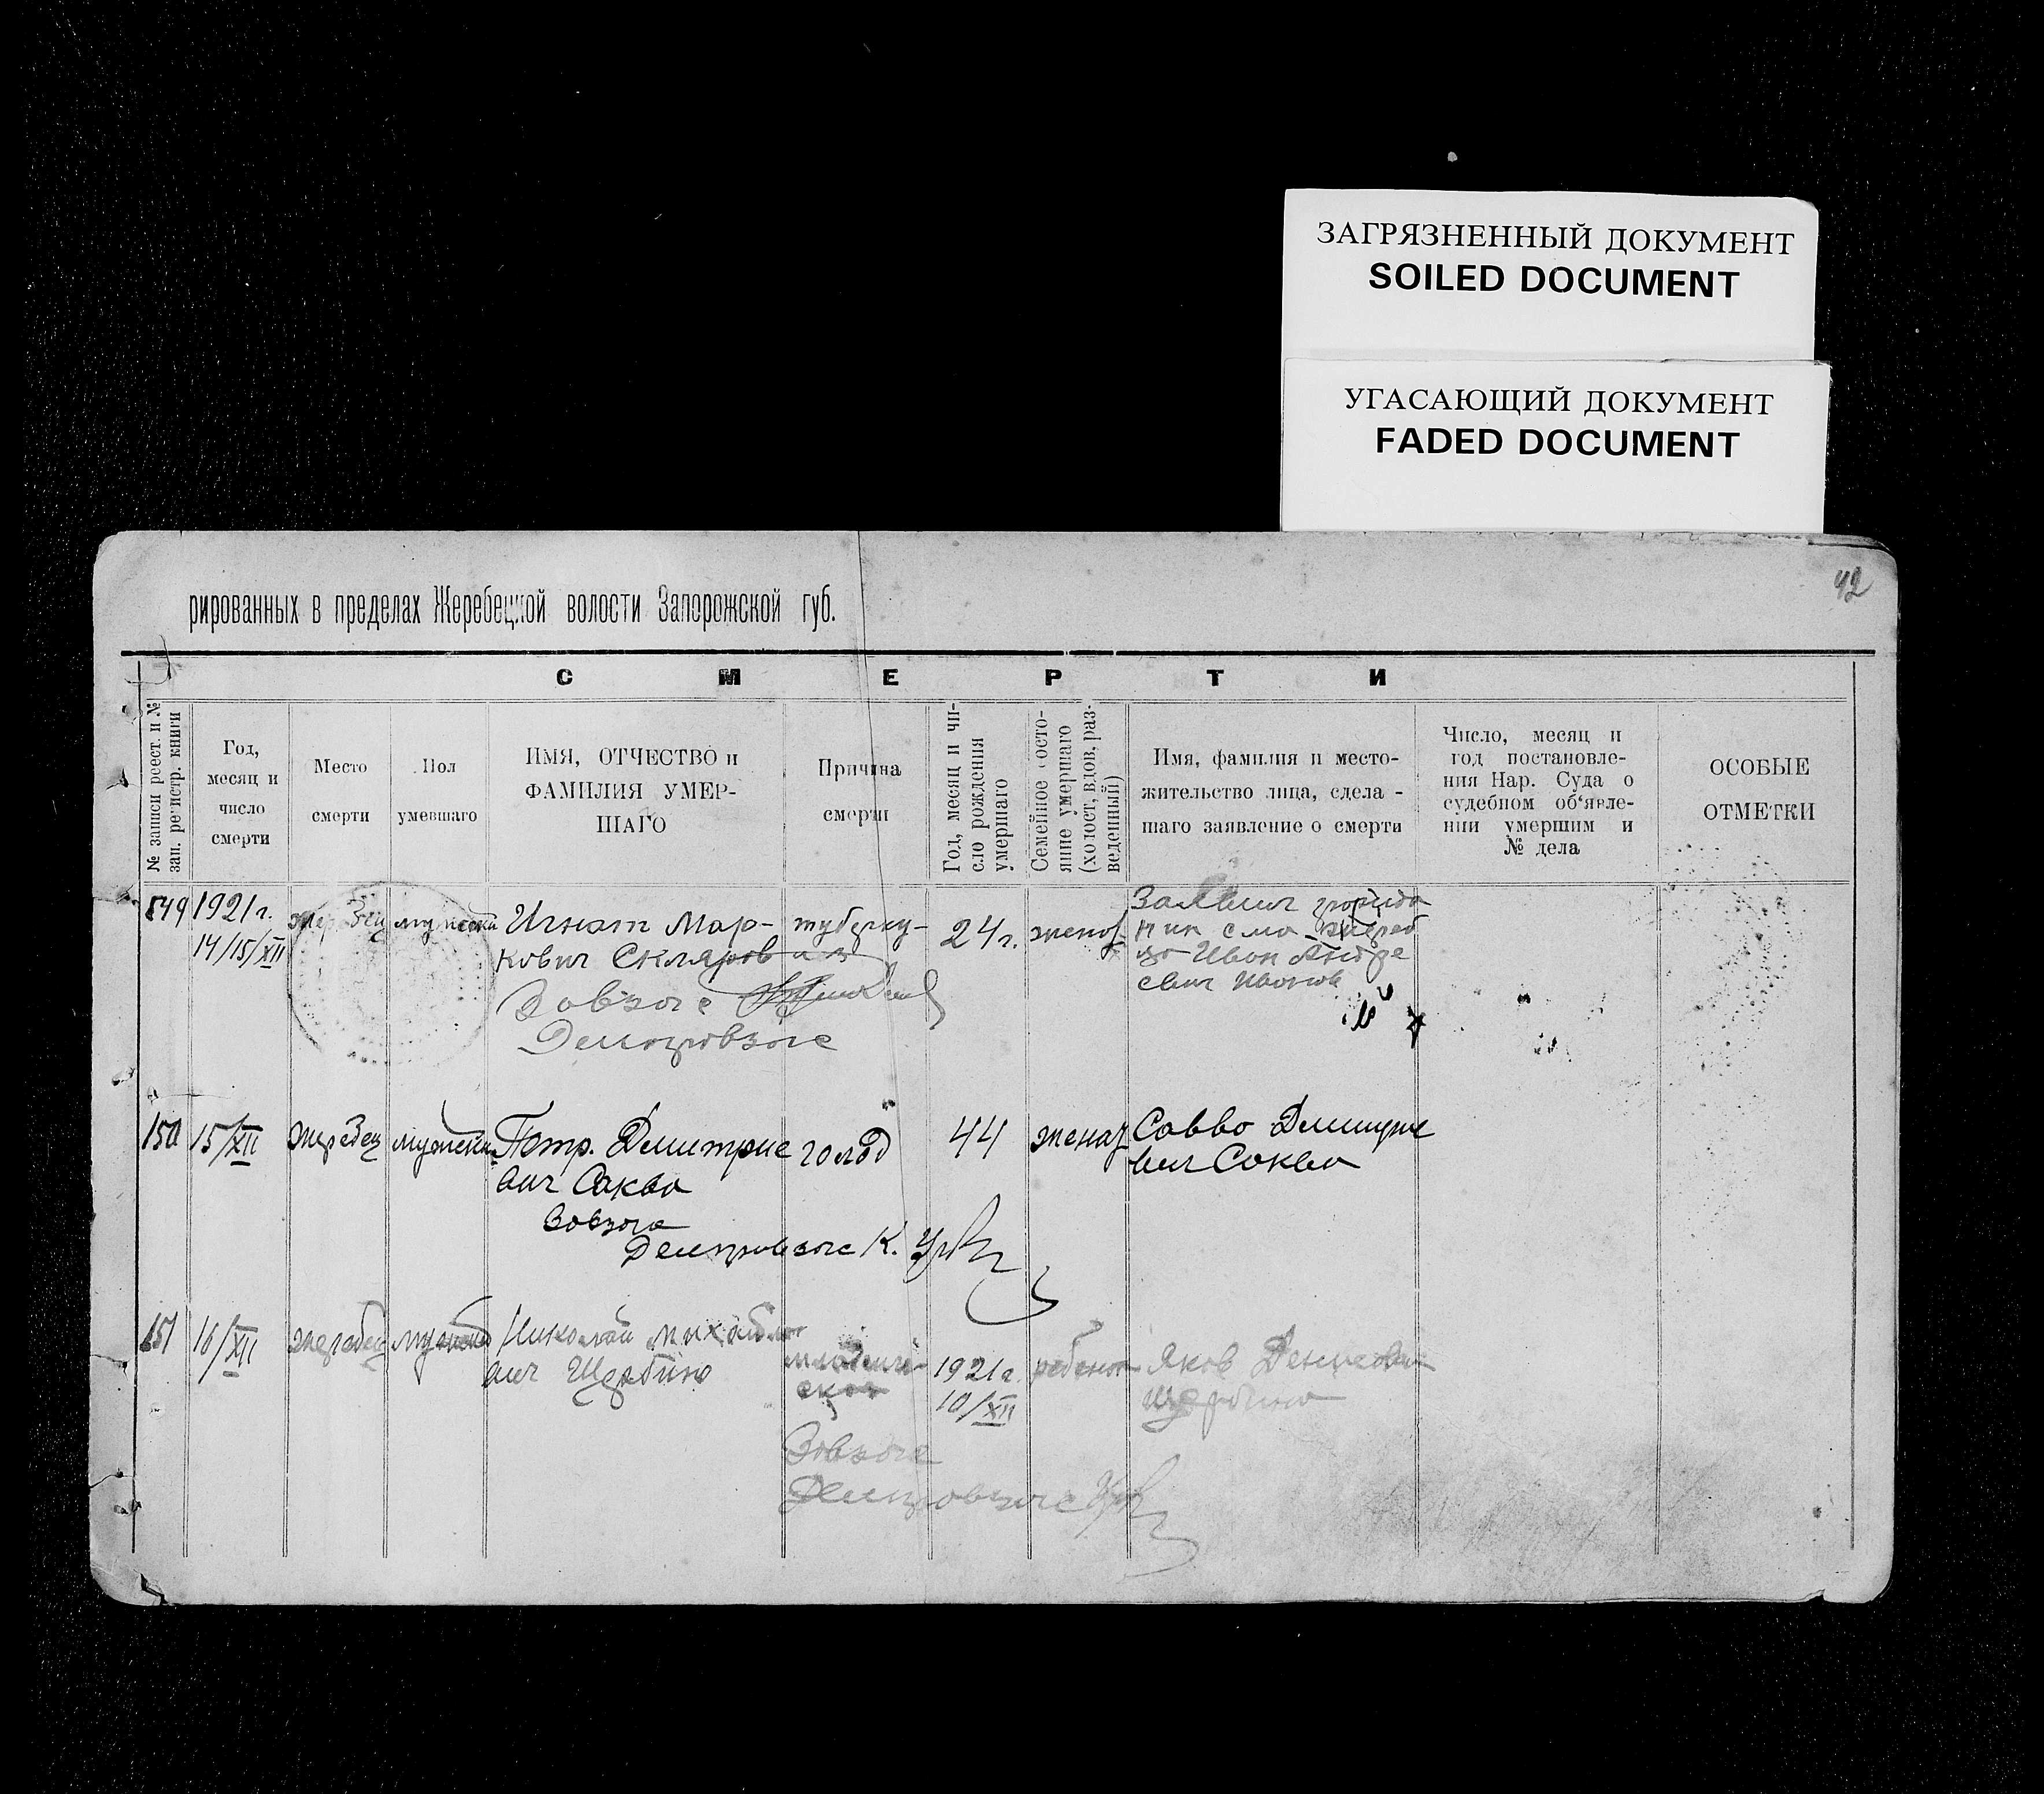 ЗАГРЯЗНЕННЫЙ ДОКУМЕНТ
SOILED DOCUMENT
УГАСАЮЩИЙ ДОКУМЕНТ
FADED DOCUMENT
42
рированных в пределах Жеребецкой волости Запорожской губ.
С М Е Р Т И
№ записи реест. и №
зап. регистр. книги
Год,
месяц и
число
смерти
Место
смерти
Пол
умевшаго
ИМЯ, ОТЧЕСТВО и
ФАМИЛИЯ УМЕР-
ШАГО
Причина
смерти
Год, месяц и чи-
сло рождения
умершаго
Семейное осто-
яние умершаго
(холост, вдов, раз-
веденный)
Имя, фамилия и место-
жительство лица, сдела -
шаго заявление о смерти
Число, месяц и
год постановле-
ния Нар. Суда о
судебном об‘явле-
нии умершим и
№ дела
ОСОБЫЕ
ОТМЕТКИ
149
1921 г.
14/15/XII
Игнат Мар-
кович Скляров
туберку-
24 г.
женат
Иван Андре
евич
Завзагс
Демпровзагс
150
15/XII
жеребец
мужской
Петр. Дмитрие
вич Саква
голод
44
женат
Савво Дмитрие
вич Саква
Завзагс
К.
151
16/XII
жеребец
Николай михайло
вич Щербина
младенче-
ская
1921 г.
10/XII
ребенок
Яков Денисович
Щербина
Завзагс